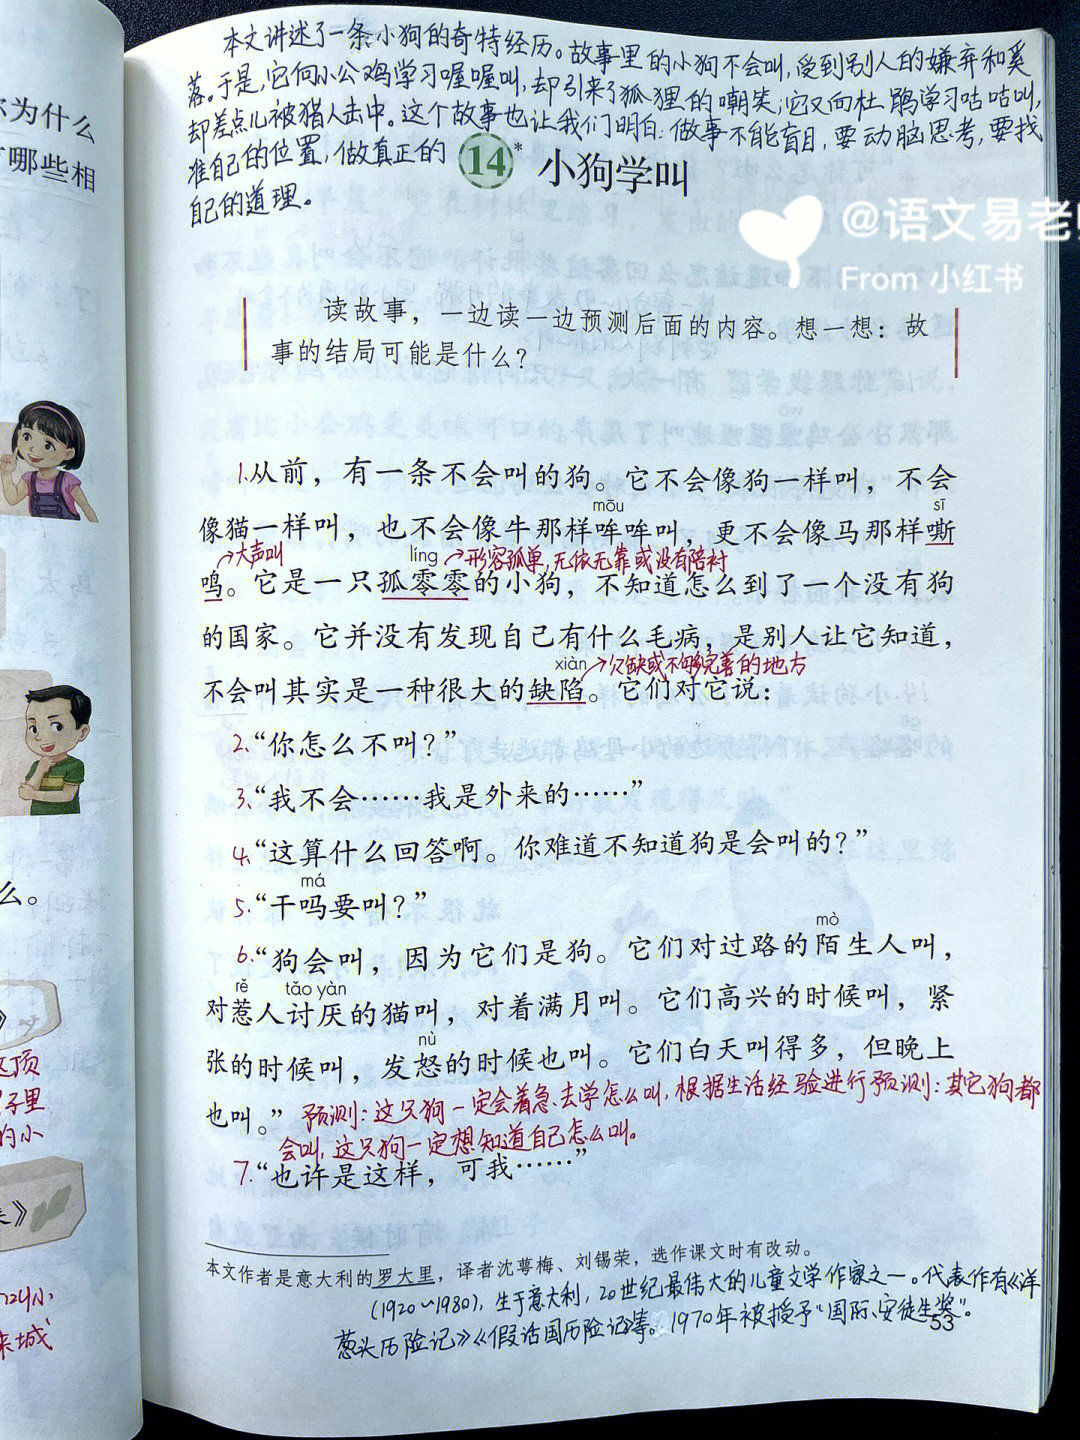 本文讲述了一条小狗的奇特经历。故事里的小狗不会叫,受到别人的嫌弃和奚
落。于是,它向小公鸡学习喔喔叫,却引来了狐狸的嘲笑;它又向杜鹃学习咕咕叫,
却差点儿被猎人击中。这个故事也让我们明白:做事不能盲目,要动脑思考,要找
准自己的位置,做真正的
自己的道理。
14* 小狗学叫
@语文易老
From 小红书
你为什么
哪些相
读故事,一边读一边预测后面的内容。想一想:故
事的结局可能是什么?
1.从前,有一条不会叫的狗。它不会像狗一样叫,不会
mōu sī
像猫一样叫,也不会像牛那样哞哞叫,更不会像马那样嘶
→大声叫 líng →形容孤单,无依无靠或没有陪衬
鸣。它是一只孤零零的小狗,不知道怎么到了一个没有狗
的国家。它并没有发现自己有什么毛病,是别人让它知道,
xiàn →欠缺或不够完善的地方
不会叫其实是一种很大的缺陷。它们对它说:
2.“你怎么不叫?”
3.“我不会……我是外来的……”
4.“这算什么回答啊。你难道不知道狗是会叫的?”
má
5.“干吗要叫?”
mò
6.“狗会叫,因为它们是狗。它们对过路的陌生人叫,
rě tǎo yàn
对惹人讨厌的猫叫,对着满月叫。它们高兴的时候叫,紧
nù
张的时候叫,发怒的时候也叫。它们白天叫得多,但晚上
也叫。” 预测:这只狗一定会着急去学怎么叫,根据生活经验进行预测:其它狗都
会叫,这只狗一定想知道自己怎么叫。
7.“也许是这样,可我……”
么。
》
这顶
子里
的小
》
来城
本文作者是意大利的罗大里,译者沈萼梅、刘锡荣,选作课文时有改动。
(1920~1980),生于意大利,20世纪最伟大的儿童文学作家之一。代表作有《洋
葱头历险记》《假话国历险记》等。1970年被授予“国际安徒生奖”。
53